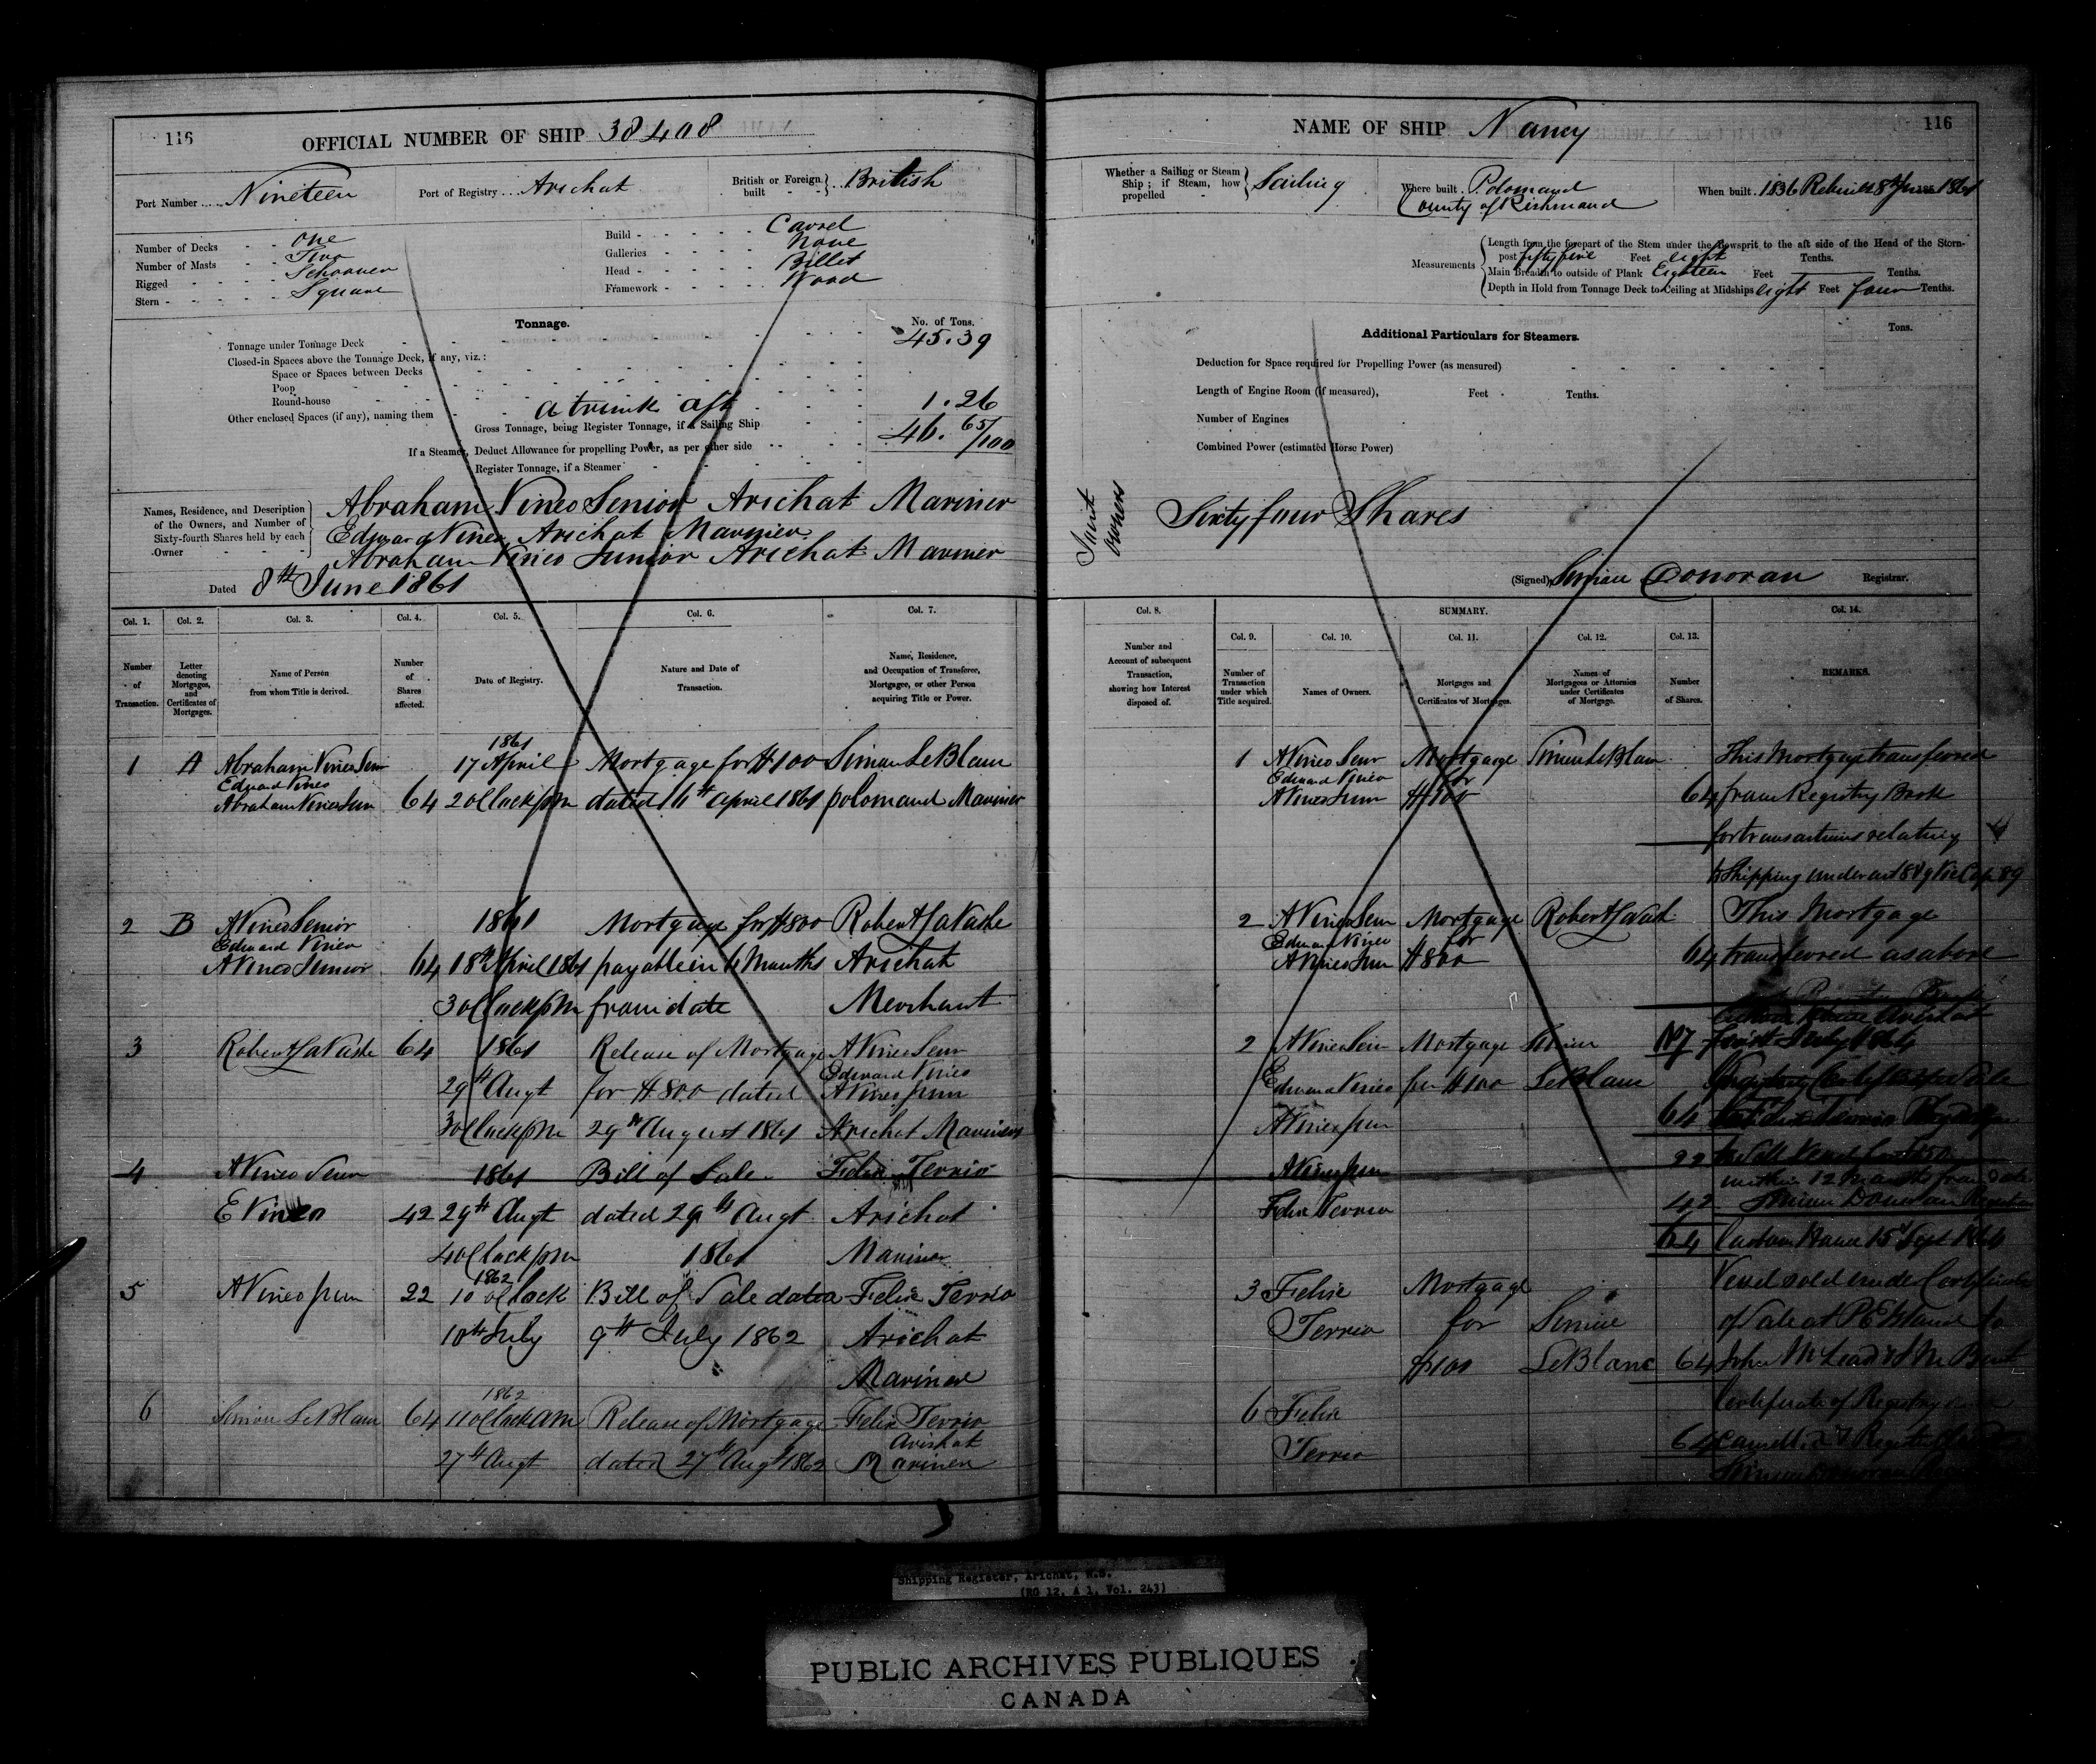 116
OFFICIAL NUMBER OF SHIP 38408
Port Number Nineteen
Port of Registry Arichat
British or Foreign built British
Number of Decks - - one
Number of Masts - - Two
Rigged - - - - Schooner
Stern - - - - Square
Build - - - - - Carvel
Galleries - - - - - None
Head - - - - - Billet
Framework - - - - - Wood
Tonnage.
No. of Tons.
Tonnage under Tonnage Deck 45.39
Closed-in Spaces above the Tonnage Deck, if any, viz.:
Space or Spaces between Decks
Poop
Round-house
Other enclosed Spaces (if any), naming them a trunk aft 1.26
Gross Tonnage, being Register Tonnage, if a Sailing Ship 46. 65/100
If a Steamer, Deduct Allowance for propelling Power, as per other side
Register Tonnage, if a Steamer
Names, Residence, and Description of the Owners, and Number of Sixty-fourth Shares held by each Owner
Abraham Vineo Senior Arichat Mariner
Edward Vineo Arichat Mariner
Abraham Vineo Junior Arichat Mariner
Dated 8th June 1861
Col. 1. Col. 2. Col. 3. Col. 4. Col. 5. Col. 6. Col. 7.
Number of Transaction.
Letter denoting Mortgages, and Certificates of Mortgages.
Name of Person from whom Title is derived.
Number of Shares affected.
Date of Registry.
Nature and Date of Transaction.
Name, Residence, and Occupation of Transferee, Mortgagee, or other Person acquiring Title or Power.
1861
1 A Abraham Vineo Senr 17 April Mortgage for £100 Simon LeBlanc
Edward Vineo
Abraham Vineo Junr 64 2 oClock pm dated 16th April 1861 polomand Mariner
2 B A Vineo Senior 1861 Mortgage for £800 Robert LaVashe
Edward Vineo
A Vineo Junior 64 18th April 1861 payable in 4 Months Arichat
3 oClock pm from date Merchant
3 Robert LaVashe 64 1861 Release of Mortgage A Vineo Senr
Edward Vineo
29th Augt for £800 dated A Vineo junr
3 oClock pm 29th August 1861 Arichat Mariners
4 A Vineo Senr 1861 Bill of Sale Felix Terrio
E Vineo 42 29th Augt dated 29th Augt Arichat
4 oClock pm 1861 Mariner
1862
5 A Vineo junr 22 10 oClock Bill of Sale dated Felix Terrio
10th July 9th July 1862 Arichat
Mariner
1862
6 Simon LeBlanc 64 11 oClock AM Release of Mortgage Felix Terrio
Arichat
27th Augt dated 27th Augt 1862 Mariner
NAME OF SHIP Nancy
116
Whether a Sailing or Steam Ship; if Steam, how propelled Sailing
Where built Polomand
County of Richmand
When built 1836 Rebuilt 8th June 1861
Measurements
Length from the forepart of the Stem under the Bowsprit to the aft side of the Head of the Stern-
post fifty five Feet eight Tenths.
Main Breadth to outside of Plank Eighteen Feet Tenths.
Depth in Hold from Tonnage Deck to Ceiling at Midships eight Feet four Tenths.
Additional Particulars for Steamers.
Tons.
Deduction for Space required for Propelling Power (as measured)
Length of Engine Room (if measured), Feet Tenths.
Number of Engines
Combined Power (estimated Horse Power)
Joint owners
Sixty four Shares
(Signed) Simon Donovan Registrar.
SUMMARY.
Col. 8. Col. 9. Col. 10. Col. 11. Col. 12. Col. 13. Col. 14.
Number and Account of subsequent Transaction, showing how Interest disposed of.
Number of Transaction under which Title acquired.
Names of Owners.
Mortgages and Certificates of Mortgages.
Names of Mortgagees or Attornies under Certificates of Mortgage.
Number of Shares.
REMARKS.
1 A Vineo Senr Mortgage Simon LeBlanc This Mortgage transferred
Edward Vineo for
A Vineo Junr £100 64 from Registry Book
for transactions relating
to Shipping under act 8 & 9 Vic Cap 89
2 A Vineo Senr Mortgage Robert LaVash This Mortgage
Edward Vineo for
A Vineo Junr £800 64 transferred as above
2 A Vineo Senr Mortgage Simon
Edward Vineo for £100 LeBlanc
A Vineo junr 64
A Vineo junr 22
within 12 Months from date
Felix Terrio 42 Simon Donovan Registrar
64 Custom House 15 Sept 1864
3 Felix Mortgage Vessel sold under Certificate
Terrio for Simon of Sale at P E Island to
£100 LeBlanc 64
6 Felix Certificate of Registry
Terrio 64
Shipping Register, Arichat, N.S.
(RG 12, A 1, Vol. 243)
PUBLIC ARCHIVES PUBLIQUES
CANADA